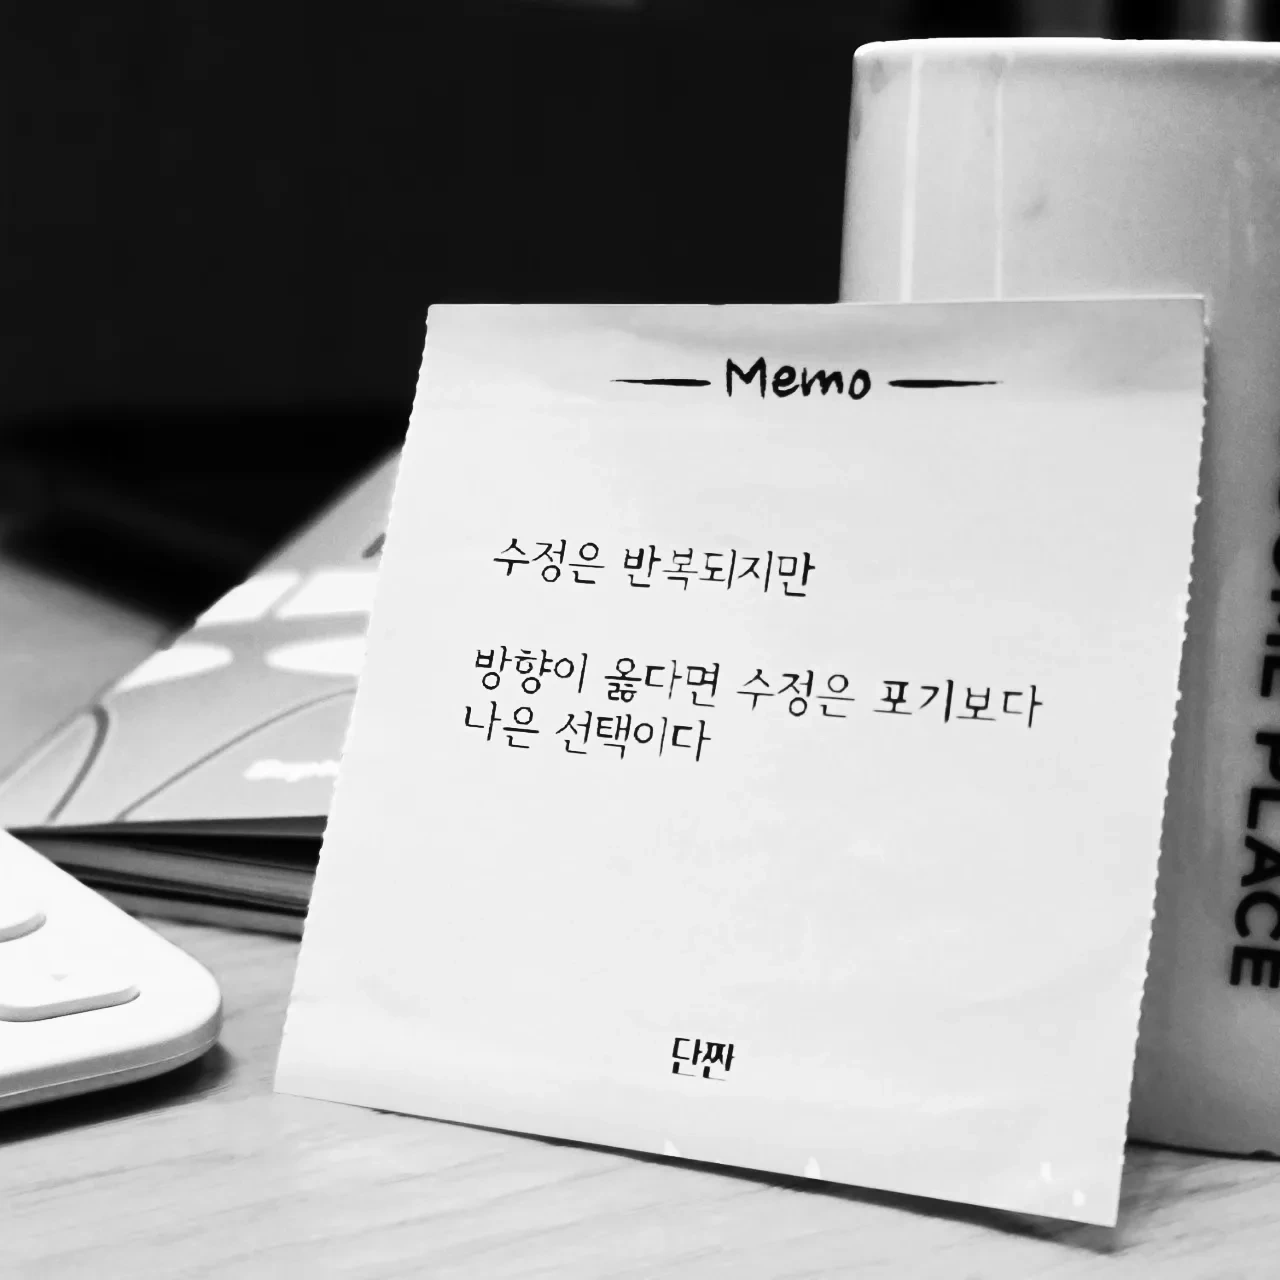 Memo
수정은 반복되지만
방향이 옳다면 수정은 포기보다
나은 선택이다
단짠
PLACE